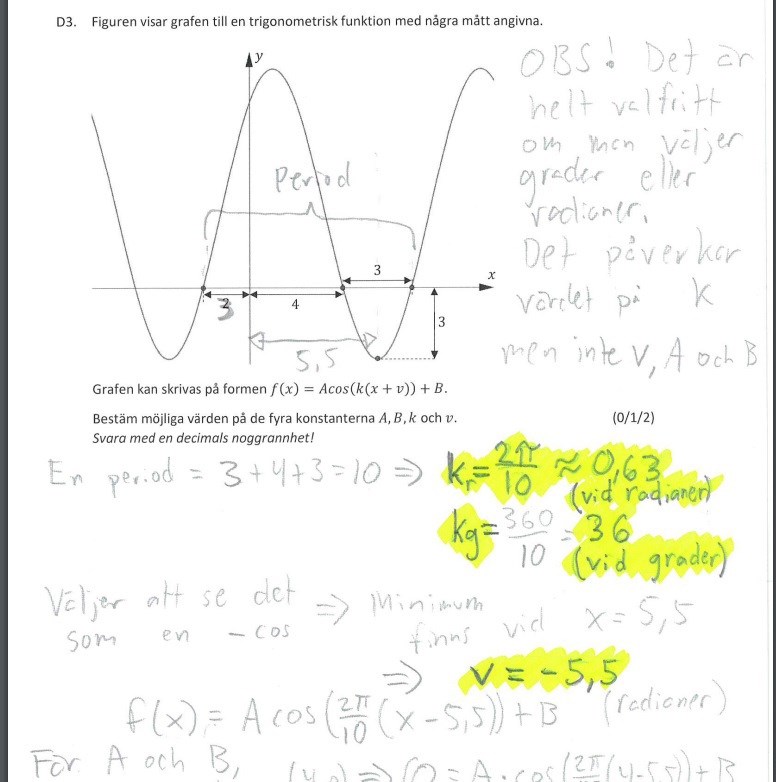 D3. Figuren visar grafen till en trigonometrisk funktion med några mått angivna.
y
OBS! Det är
helt valfritt
om man väljer
grader eller
radianer.
Det påverkar
värdet på k
men inte v, A och B
Period
3
x
3
4
3
5,5
Grafen kan skrivas på formen f(x) = Acos(k(x + v)) + B.
Bestäm möjliga värden på de fyra konstanterna A, B, k och v. (0/1/2)
Svara med en decimals noggrannhet!
En period = 3+4+3=10 => kr = 2π/10 ≈ 0,63
(vid radianer)
kg = 360/10 = 36
(vid grader)
Väljer att se det => Minimum
som en -cos finns vid x = 5,5
=> v = -5,5
f(x) = A cos(2π/10 (x-5,5)) + B (radianer)
För A och B,